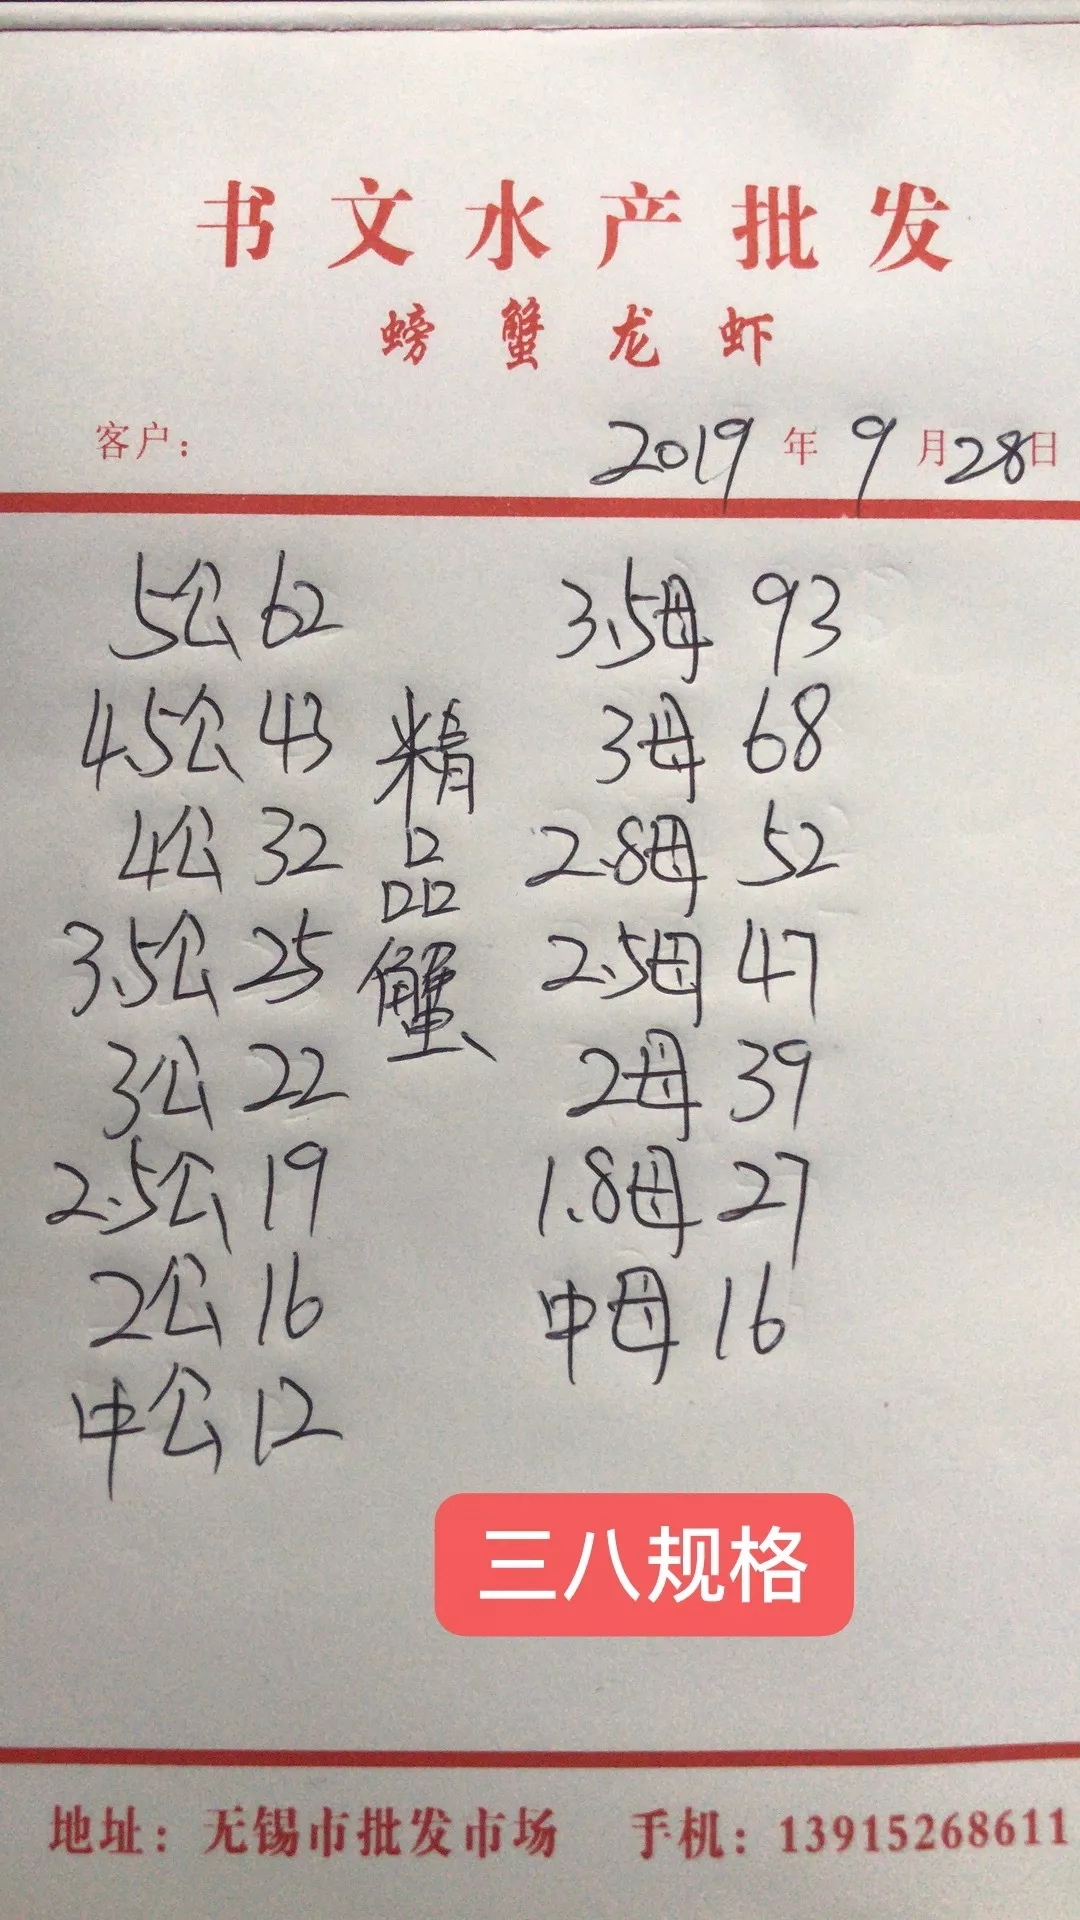 书文水产批发
螃蟹龙虾
客户： 2019年9月28日
5公 62
4.5公 43
4公 32
3.5公 25
3公 22
2.5公 19
2公 16
中公 12
精品蟹
3.5母 93
3母 68
2.8母 52
2.5母 47
2母 39
1.8母 27
中母 16
三八规格
地址：无锡市批发市场 手机：13915268611